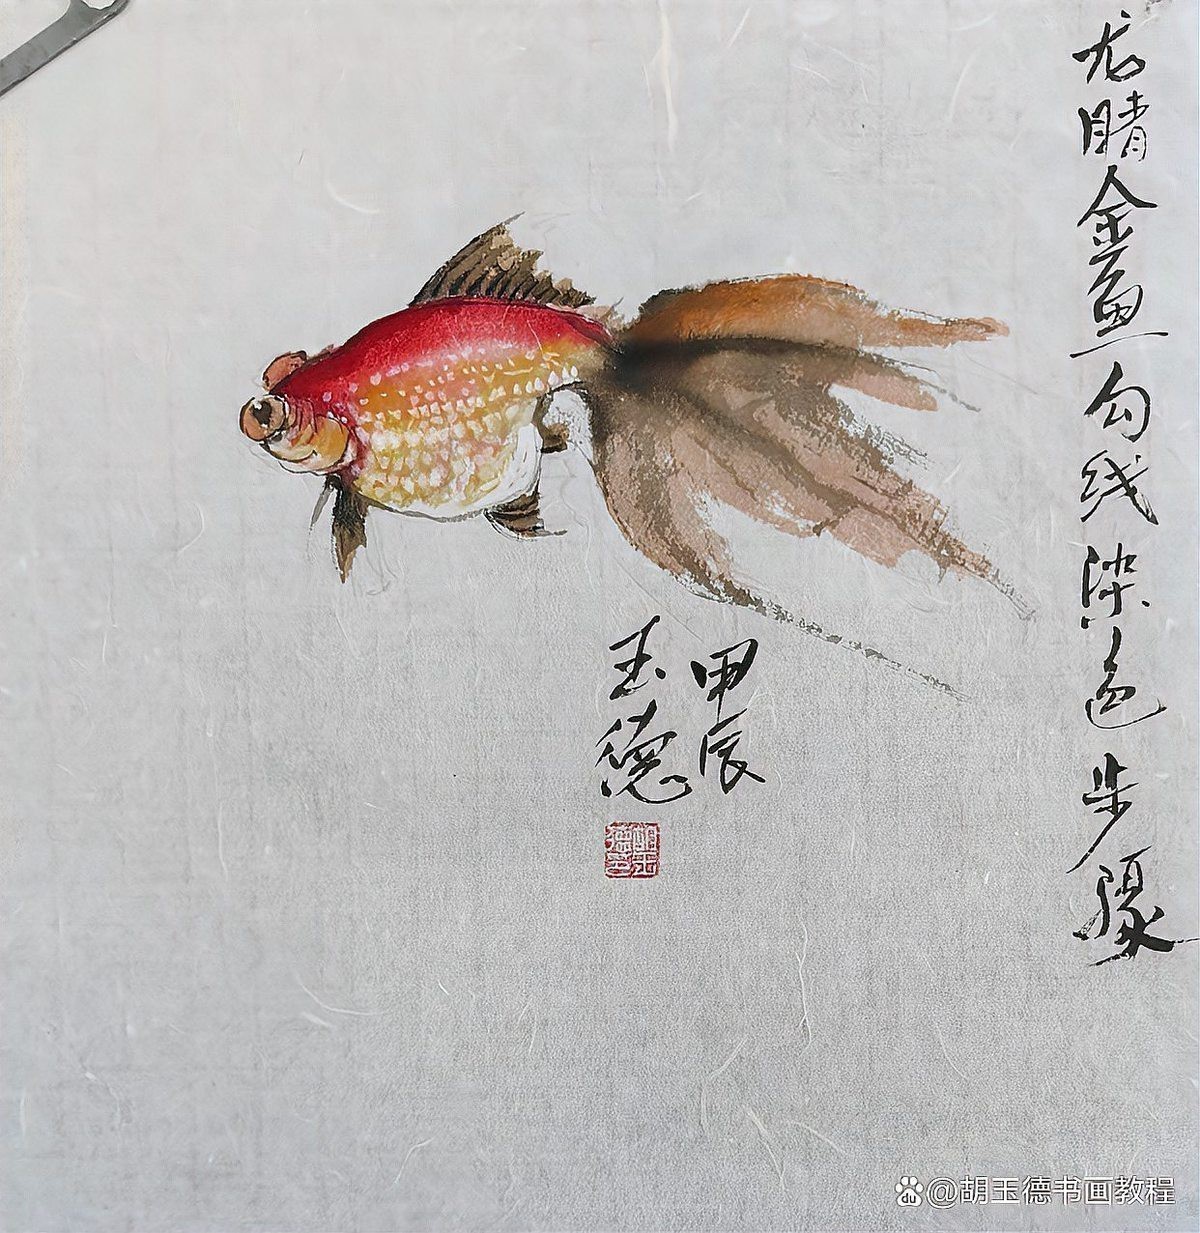 龙睛金鱼勾线染色步骤
甲辰
玉德
胡玉德
@胡玉德书画教程